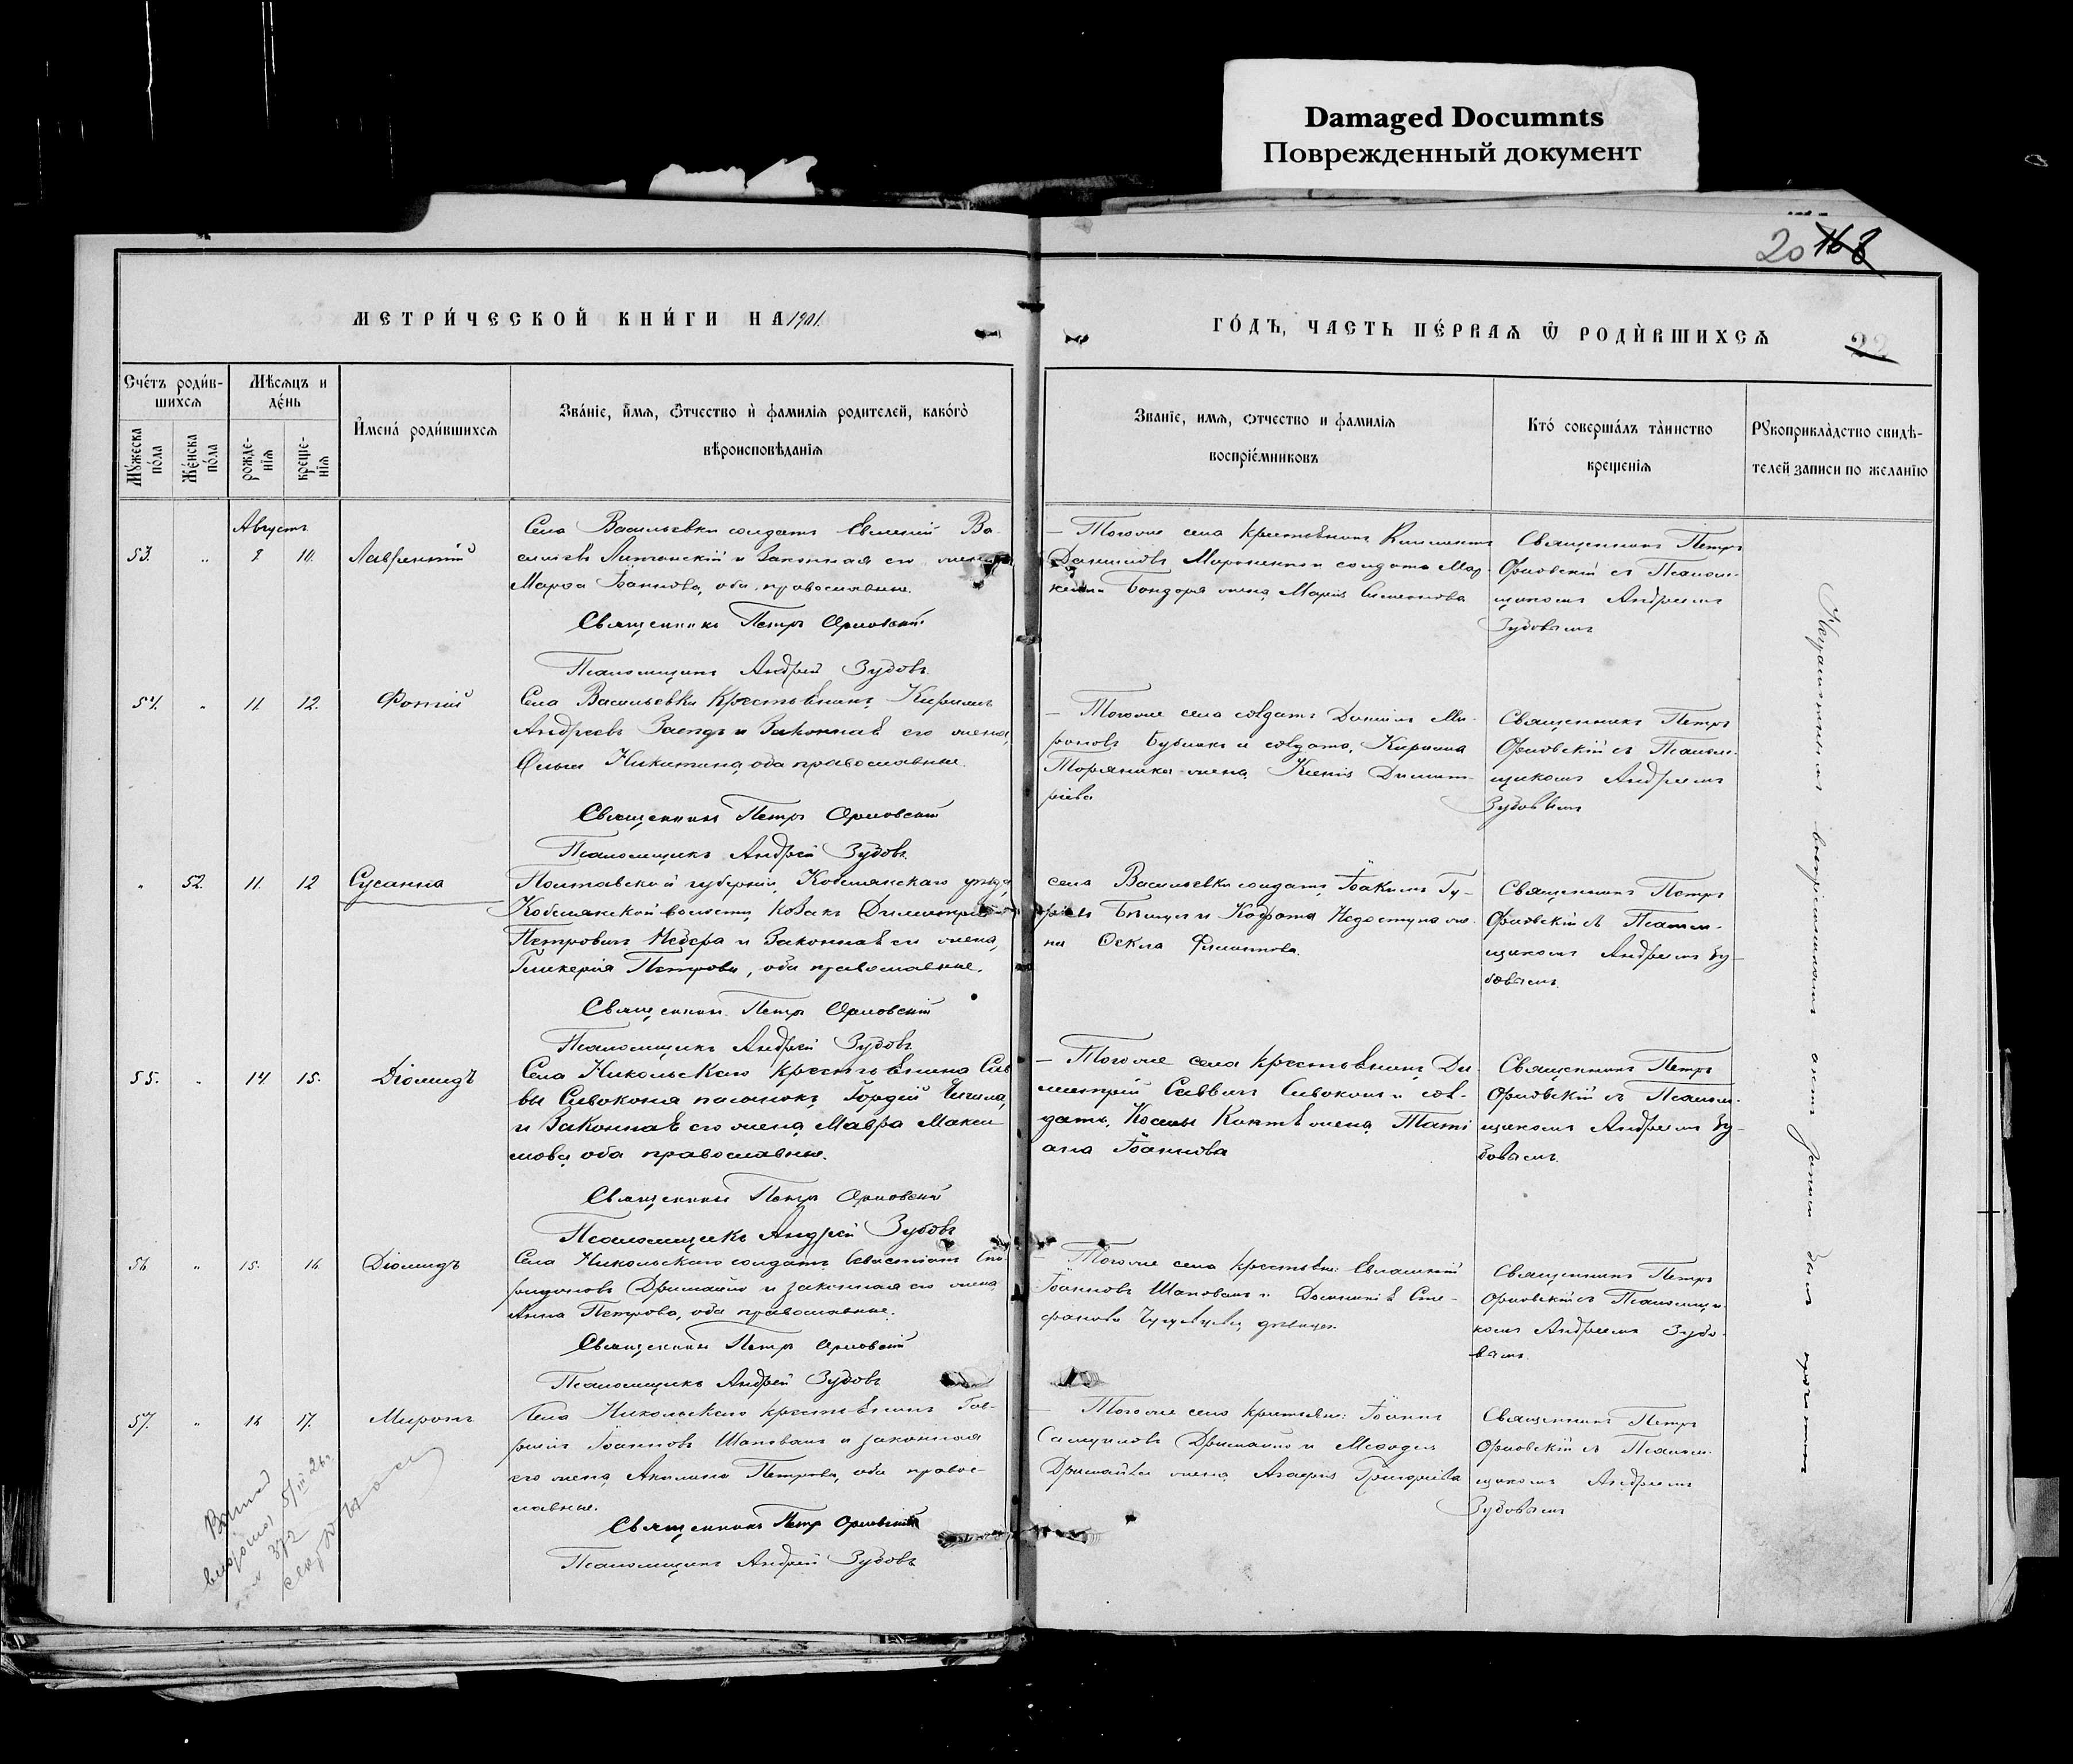 Damaged Documnts
Поврежденный документ
20 168
МЕТРИ́ЧЕСКОЙ КНИ́ГИ НА 1901.
ГО́ДЪ, ЧАСТЬ ПЕ́РВАѦ Ѿ РОДИ́ВШИХСѦ
22
Сче́тъ роди́в-
шихсѧ
Мѣсѧцъ и
де́нь
Мꙋ́жеска
по́ла
Же́нска
по́ла
рожде-
нїѧ
креще-
нїѧ
И҆мена́ роди́вшихсѧ
Зва́нїе, и҆́мѧ, ѻ҆́тчество и҆ фамилїѧ родителей, како́гѡ
вѣроисповѣданїѧ
Званїе, имѧ, ѻтчество и фамилїѧ
воспрїе́мниковъ
Кто́ соверша́лъ та́инство
крещенїѧ
Рꙋкоприкла́дство свидѣ-
телей записи по желанїю
Августъ
53. " 8 10. Лаврентій
Села Васильевки солдатъ Евгеній Ва-
сильевъ и законная его жена
Марѳа Іоаннова, оба православные.
Священникъ Петръ Орловскій
Псаломщикъ Андрей Зубовъ
— Того же села крестьянинъ Климентъ
Даниловъ и солдата
Бондаря жена Марія Симеонова
Священникъ Петръ
Орловскій съ Псалом-
щикомъ Андреемъ
Зубовымъ
54. " 11. 12. Фотій
Села Васильевки крестьянинъ Кириллъ
Андреевъ Заецъ и законная его жена
Никитина, оба православные.
Священникъ Петръ Орловскій
Псаломщикъ Андрей Зубовъ
— Того же села солдатъ Даніилъ Ми-
роновъ Бубликъ и солдата Кирилла
Торяника жена Ксенія Димит-
ріева
Священникъ Петръ
Орловскій съ Псалом-
щикомъ Андреемъ
Зубовымъ
" 52. 11. 12 Сусанна
Полтавской губерніи, Кобелякскаго уѣзда
Кобелякской волости, козакъ Димитрій
Петровичъ и законная его жена
Гликерія Петрова, оба православные.
Священникъ Петръ Орловскій
Псаломщикъ Андрей Зубовъ
села Васильевки солдатъ Іоакимъ
и Кодрата Недоступа же-
на Ѳекла Филиппова.
Священникъ Петръ
Орловскій съ Псалом-
щикомъ Андреемъ Зу-
бовымъ.
55. " 14. 15. Діомидъ
Села Никольскаго крестьянина Сав-
вы Сивоконя пасынокъ, Гордій
и законная его жена Мавра Макси-
мова, оба православные.
Священникъ Петръ Орловскій
Псаломщикъ Андрей Зубовъ
— Того же села крестьянинъ Ди-
митрій Саввинъ Сивоконь и сол-
дата, Космы жена Тати-
ана Іоаннова
Священникъ Петръ
Орловскій съ Псалом-
щикомъ Андреемъ Зу-
бовымъ.
56 " 15. 16 Діомидъ
Села Никольскаго солдатъ Севастіанъ Спи-
ридоновъ и законная его жена
Анна Петрова, оба православные.
Священникъ Петръ Орловскій
Псаломщикъ Андрей Зубовъ
— Того же села крестьян: Евлампій
Іоанновъ Шаповалъ и Домникія Сте-
фанова девица.
Священникъ Петръ
Орловскій съ Псаломщи-
комъ Андреемъ Зубо-
вымъ.
57. " 16 17. Миронъ
Села Никольскаго крестьянинъ Гав-
ріилъ Іоанновъ Шаповалъ и законная
его жена, Акилина Петрова, оба право-
славные.
Священникъ Петр Орловскій
Псаломщикъ Андрей Зубовъ
— Того же села крестьян: Іоаннъ
Самуиловъ и
жена Агафія Григоріева
Священникъ Петръ
Орловскій съ Псалом-
щикомъ Андреемъ
Зубовымъ
Неграмотнымъ воспріемникамъ актъ записи былъ прочитанъ
5/III 26 г.
372